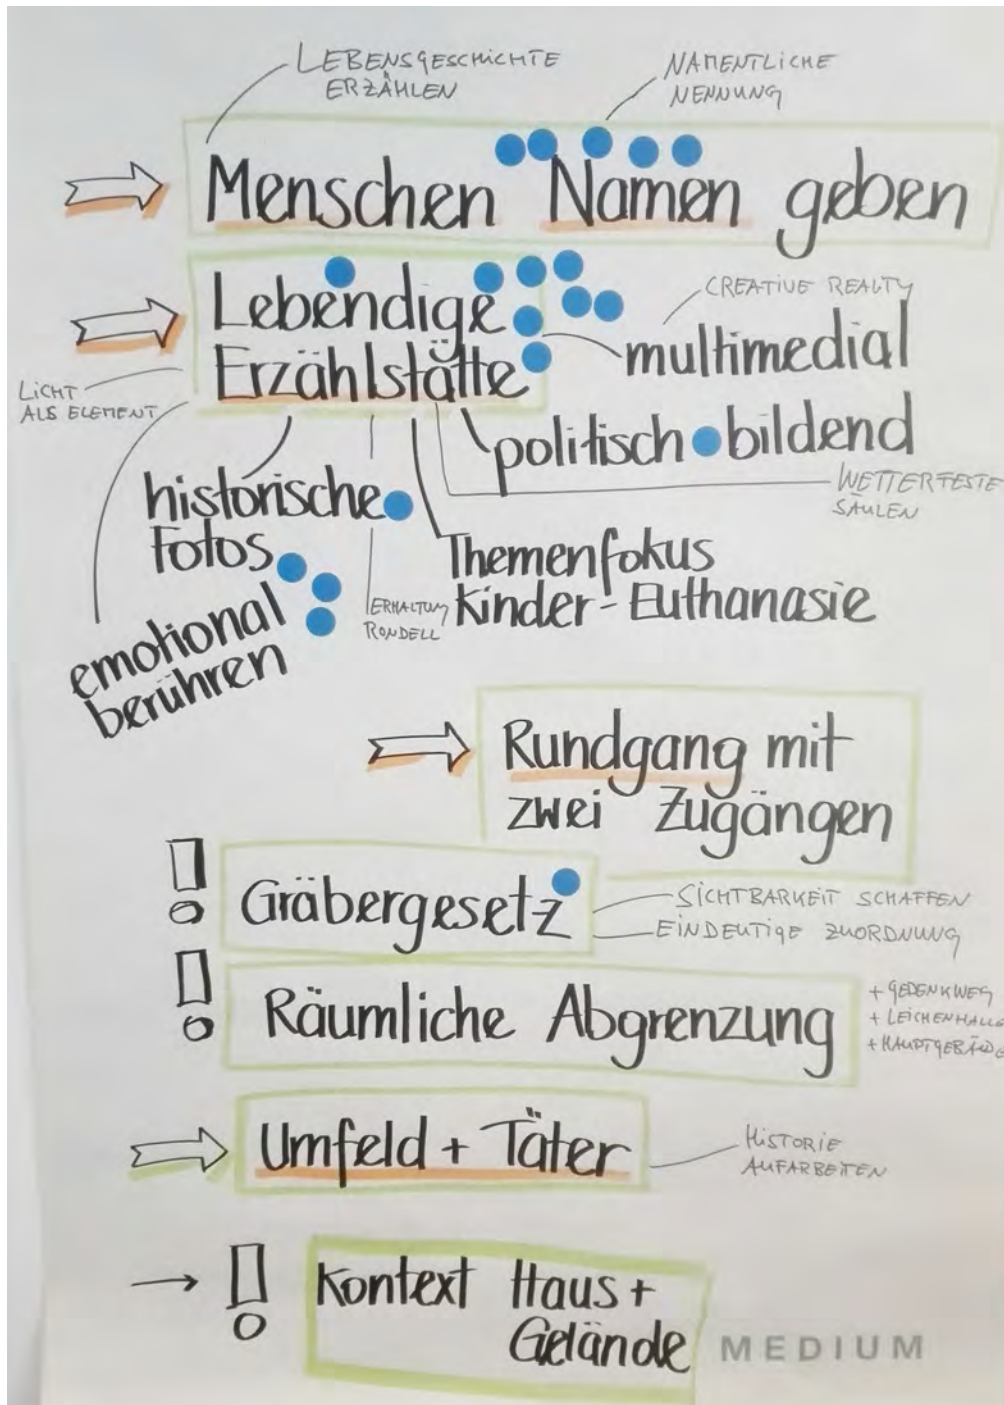 LEBENSGESCHICHTE
ERZÄHLEN
NAMENTLICHE
NENNUNG
Menschen Namen geben
Lebendige
Erzählstätte
CREATIVE REALTY
multimedial
LICHT
ALS ELEMENT
politisch bildend
WETTERFESTE
SÄULEN
historische
Fotos
Themenfokus
Kinder-Euthanasie
ERHALTUNG
RONDELL
emotional
berühren
Rundgang mit
zwei Zugängen
Gräbergesetz
SICHTBARKEIT SCHAFFEN
EINDEUTIGE ZUORDNUNG
Räumliche Abgrenzung
+ GEDENKWEG
+ LEICHENHALLE
+ HAUPTGEBÄUDE
Umfeld + Täter
HISTORIE
AUFARBEITEN
! Kontext Haus +
Gelände
MEDIUM